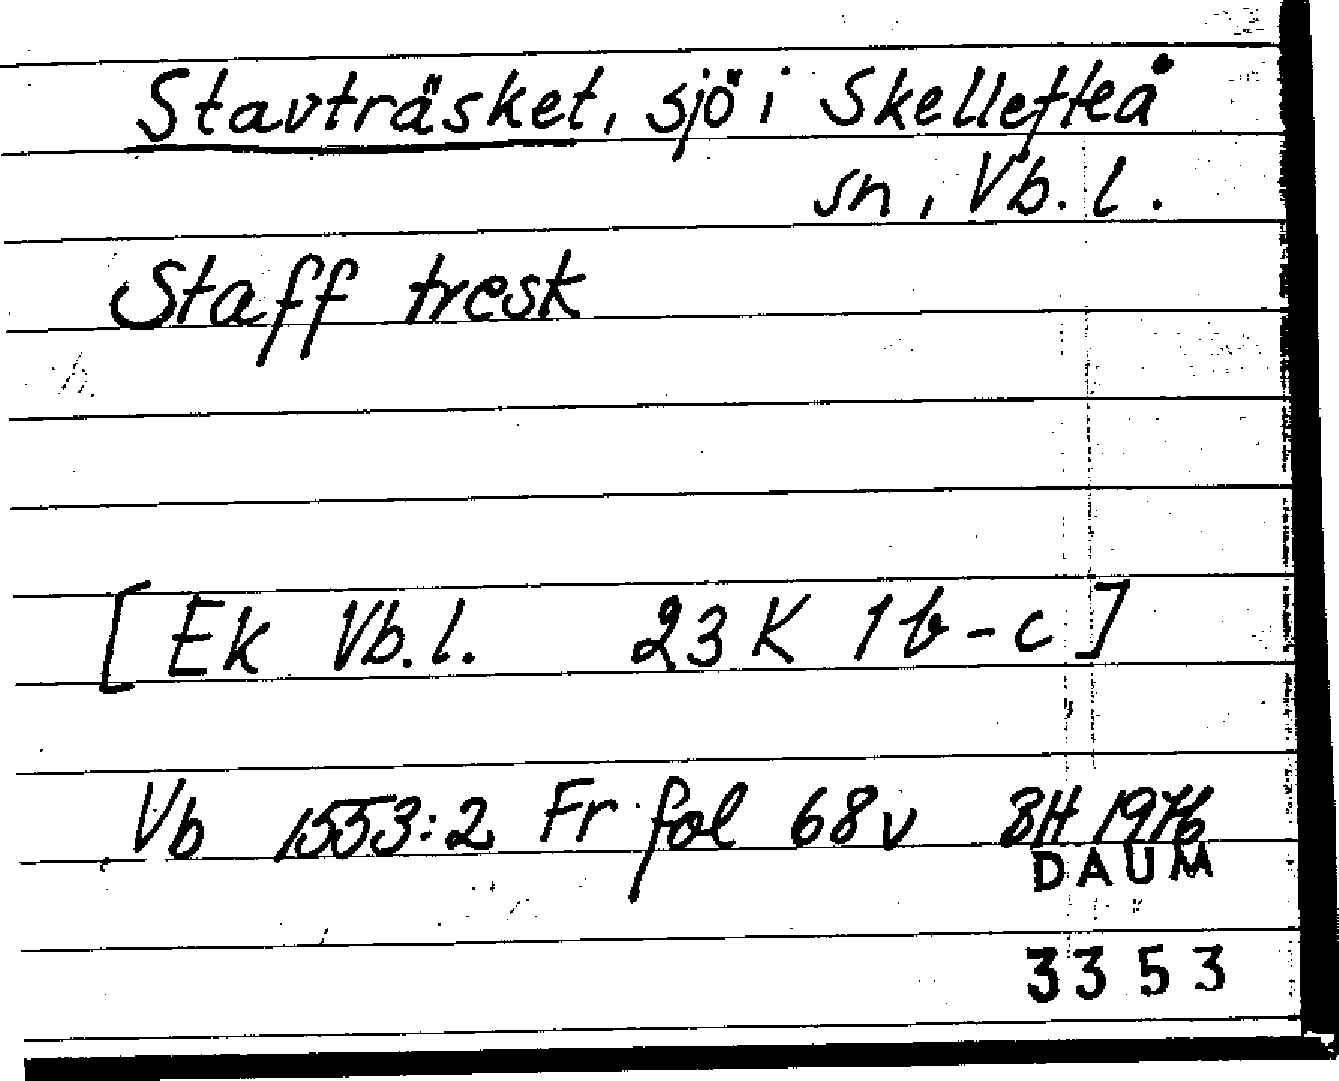 Stavträsket, sjö i Skellefteå
sn, Vb. l.
Staff tresk
[Ek Vb. l. 23 K 1 b - c]
Vb 1553:2 Fr fol 68v BH 1976
DAUM
3353